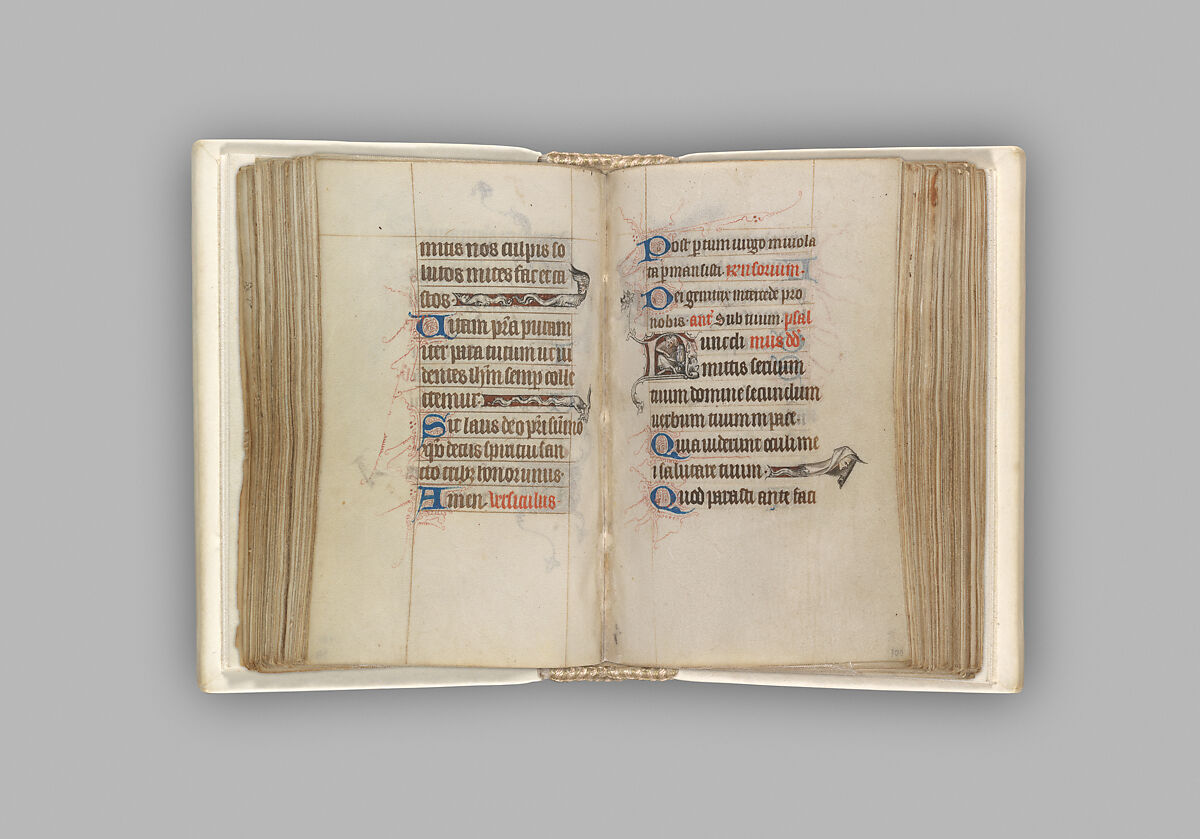 mitis nos culpis so
lutos mites fac et ca
stos.
Uitam pr̃a puram
iter para tutum ut ui
dentes ih̃m semp colle
ctemur.
Sit laus deo pr̃i sũmo
xp̃o decus spiritui san
cto tribꝫ honor unus.
Amen. Versiculus
Post ptum uirgo inuiola
ta pmansisti. Responsorium.
Dei genitrix intercede pro
nobis. añt Sub tuum. psal
Nunc di mus dd̃.
mittis seruum
tuum domine secundum
uerbum tuum in pace.
Quia uiderunt oculi me
i salutare tuum.
Quod parasti ante faci
108